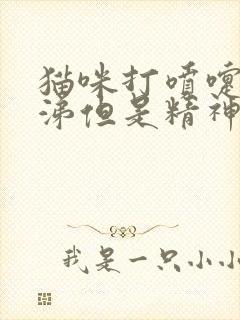 猫咪打喷嚏
涕但是精神
我是一只小小